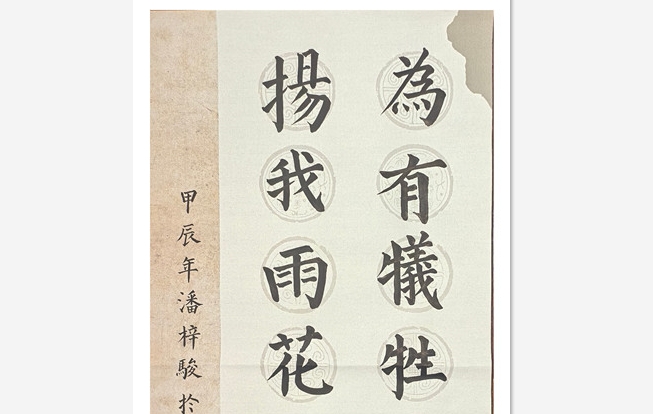 為有犧牲
揚我雨花
甲辰年潘梓駿於